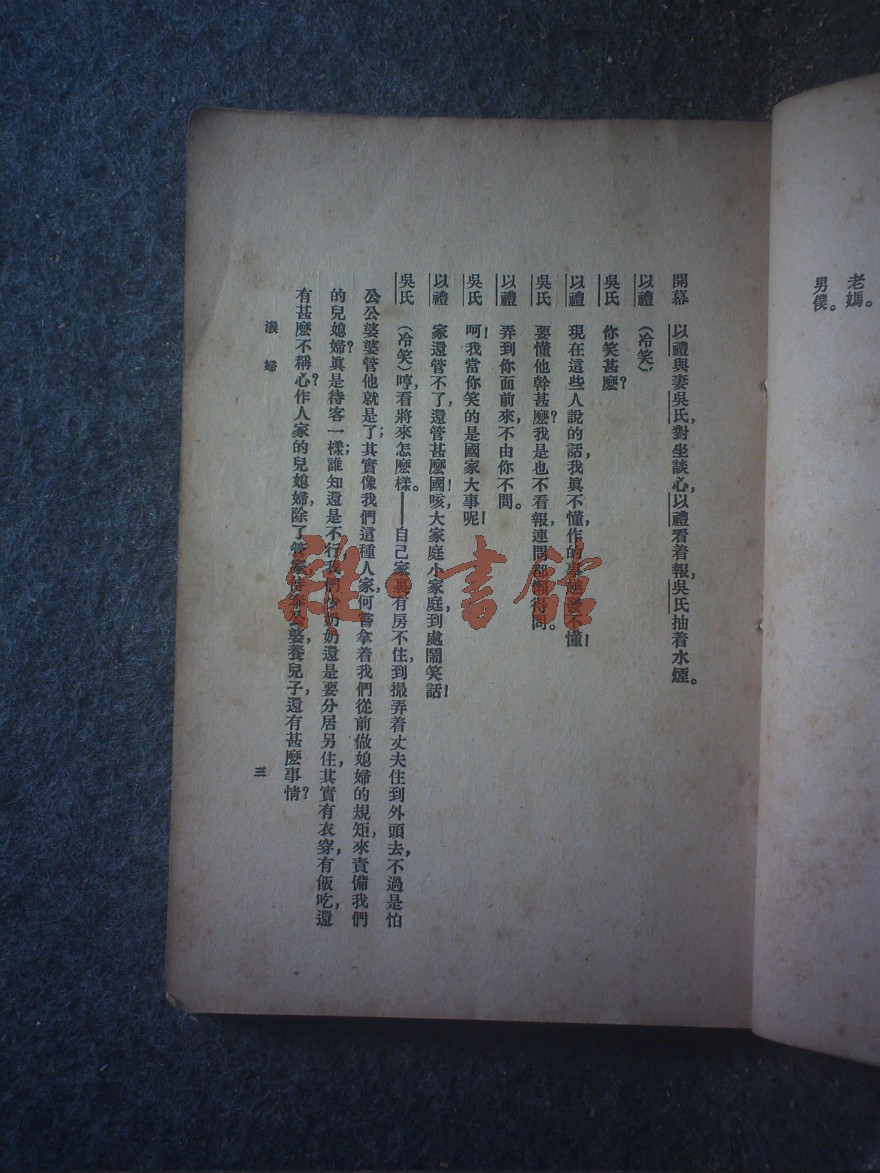 老媽。
男僕。
開幕 以禮與妻吳氏，對坐談心，以禮看着報，吳氏抽着水煙。
以禮 （冷笑）：
吳氏 你笑甚麼？
以禮 現在這些人說的話，我真不懂，作的事 不懂！
吳氏 要懂他幹甚麼？我是也不看報，連問都懶得問。
以禮 弄到你面前來，不由你不問。
吳氏 呵！我當你笑的是國家大事呢！
以禮 家還管不了，還管甚麼國！咳，大家庭小家庭，到處鬧笑話！
吳氏 （冷笑）哼，看將來怎麼樣。——自己家裏有房不住，到撮弄着丈夫住到外頭去，不過是怕
公公婆婆管他就是了；其實像我們這種人家，何嘗拿着我們從前做媳婦的規矩，來責備我們
的兒媳婦？真是待客一樣；誰知還是不行，我們少奶奶還是要分居另住，其實有衣穿，有飯吃，還
有甚麼不稱心？作人家的兒媳婦，除了管家 公婆，養兒子，還有甚麼事情？
潑婦
三
雜·書館